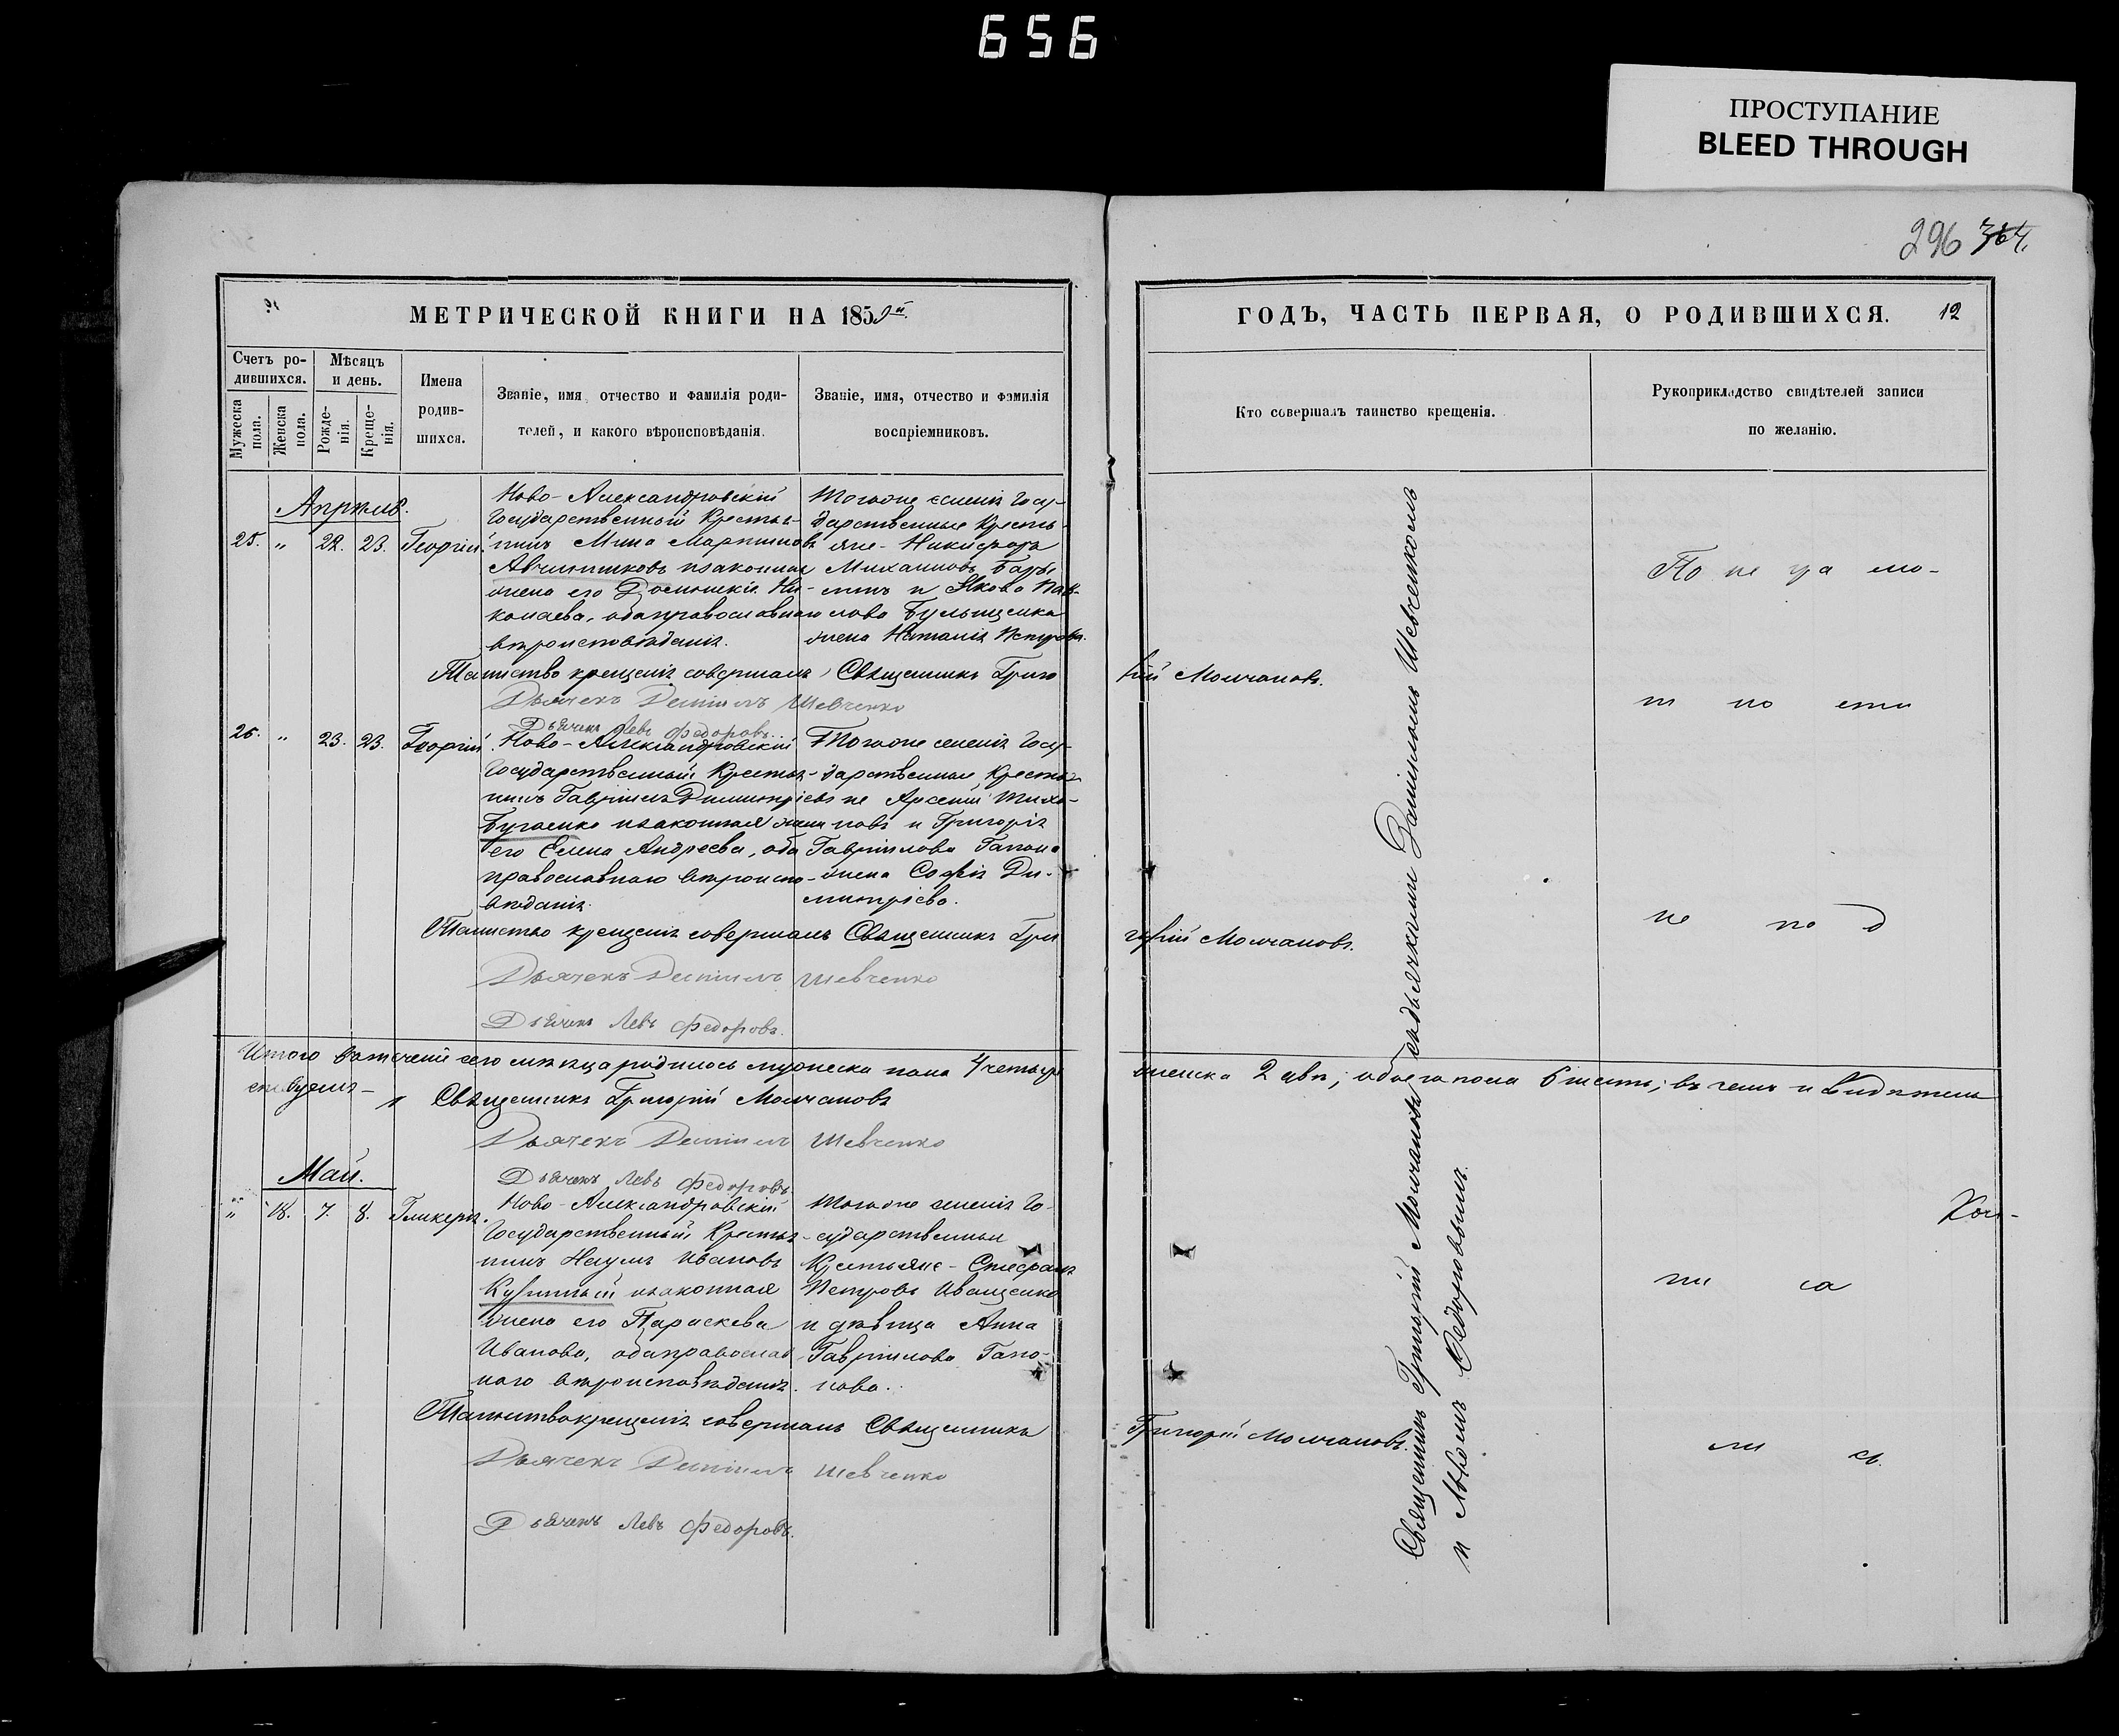 656
ПРОСТУПАНИЕ
BLEED THROUGH
296 364.
МЕТРИЧЕСКОЙ КНИГИ НА 1859й.
ГОДЪ, ЧАСТЬ ПЕРВАЯ, О РОДИВШИХСЯ. 12
Счетъ ро-
дившихся.
Мужеска пола.
Женска пола.
Мѣсяцъ
и день.
Рожде-
нія.
Креще-
нія.
Имена
родив-
шихся.
Званіе, имя отчество и фамилія роди-
телей, и какого вѣроисповѣданія.
Званіе, имя, отчество и фамилія
воспріемниковъ.
Кто совершалъ таинство крещенія.
Рукоприкладство свидѣтелей записи
по желанію.
Апрѣль.
25. „ 22. 23. Георгій.
Ново-Александровскій
Государственный Крестья-
нинъ Мина Мартиновъ
изаконная
жена его Домникія Ни-
колаева, обаправославнаго
вѣроисповѣданія.
Тогоже селенія Госу-
дарственные Кресть-
яне - Никифоръ
Михаиловъ
и Яковъ Пав-
ловъ
жена Наталія Петрова.
Таинство крещенія совершалъ Священникъ Григо
рій Молчановъ.
Дьячекъ Даніилъ Шевченко
Дьячекъ Левъ Федоровъ.
26. „ 23. 23. Георгій.
Ново-Александровскій
Государственный Крестья-
нинъ Гавріилъ Димитріевъ
Бугаенко изаконная жена
его Елена Андреева, оба
православнаго вѣроиспо-
вѣданія.
Тогоже селенія Госу-
дарственные Крестья-
не Арсеній Тихо-
новъ и Григорія
Гавріилова Гапона
жена Софія Ди-
митріева.
Таинство крещенія совершалъ Священникъ Гри
горій Молчановъ.
Дьячекъ Даніилъ Шевченко
Дьячекъ Левъ Федоровъ.
Итого втеченіи сего мѣсяца родилось мужеска пола 4 четыре
женска 2 двѣ; обоего пола 6 шесть; въ чемъ и свидѣтель
ствуемъ -
Священникъ Григорій Молчановъ
Дьячекъ Даніилъ Шевченко
Дьячекъ Левъ Федоровъ.
Май.
„ 18. 7. 8. Гликерія.
Ново-Александровскій
Государственный Крестья-
нинъ Наумъ Ивановъ
изаконная
жена его Параскева
Иванова, обаправослав
наго вѣроисповѣданія.
Тогоже селенія Го-
сударственные
Крестьяне - Стефанъ
Петровъ Иващенко
и дѣвица Анна
Гавріилова Гапо-
нова.
Таинствокрещенія совершалъ Священникъ
Григорій Молчановъ.
Дьячекъ Даніилъ Шевченко
Дьячекъ Левъ Федоровъ.
Священникъ Григорій Молчановъ сдьячками Даніиломъ Шевченкомъ
и Львомъ Федоровымъ.
По не гра мо-
т но сти
не по д
пи са
ли сь.